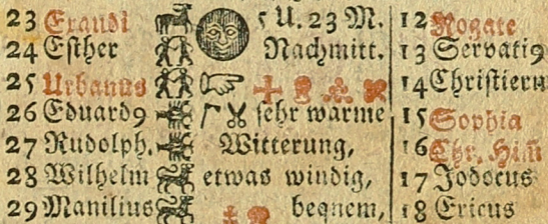 23 Exaudi 5 U. 23 M. 12 Rogate
24 Esther Nachmitt. 13 Servati9
25 Urbanus 14 Christiern
26 Eduard9 sehr warme 15 Sophia
27 Rudolph. Witterung, 16 Chr. Him̃
28 Wilhelm etwas windig, 17 Jodocus
29 Manilius beqnem, 18 Ericus